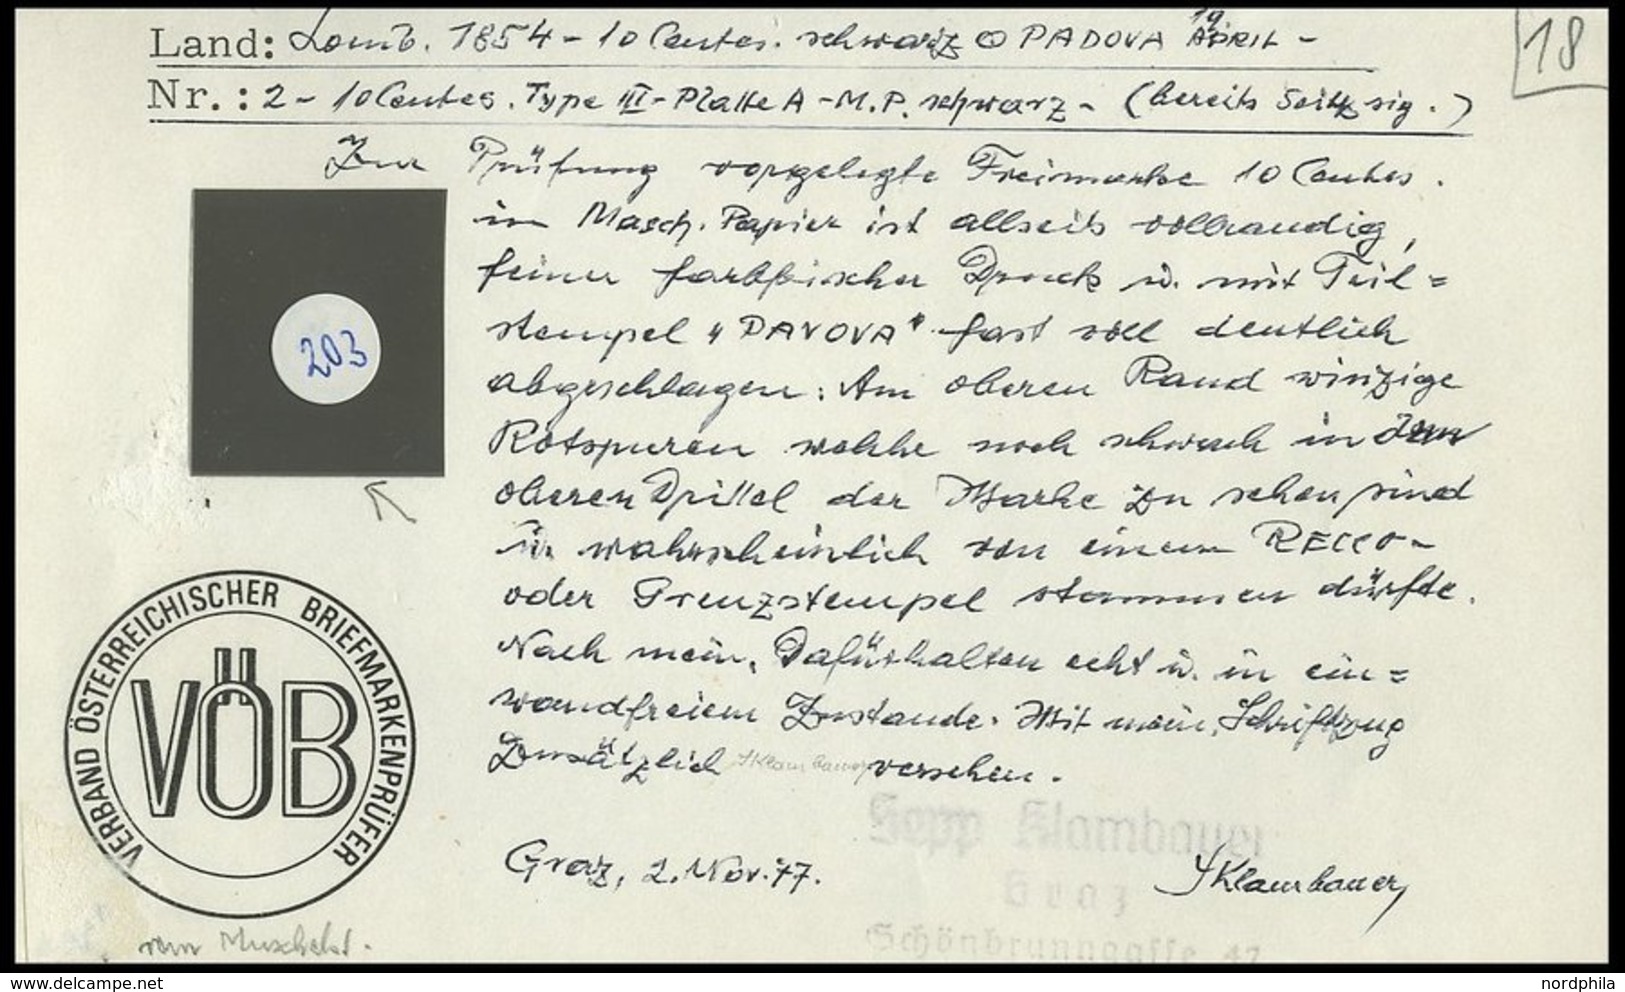 18
Land: Lomb. 1854 - 10 Centes. schwarz PADOVA 19 APRIL -
Nr.: 2 - 10 Centes. Type III - Platte A - M.P. schwarz - (bereits Seitz sig.)
Zur Prüfung vorgelegte Freimarke 10 Centes.
in Masch. Papier ist allseits vollrandig,
feiner farbfrischer Druck u. mit Teil=
stempel "PADOVA" fast voll deutlich
abgeschlagen. Am oberen Rand winzige
Rotspuren welche noch schwach in
oberen Drittel der Marke zu sehen sind
u. wahrscheinlich von einem RECCO-
oder Grenzstempel stammen dürfte.
Nach mein. Dafürhalten echt u. in ein=
wandfreiem Zustande. Mit mein. Schriftzug
Zusätzlich SKlambauer versehen.
203
Sepp Klambauer
Graz
Schönbrunngasse 47
Graz, 2. Nov. 77. SKlambauer
VERBAND ÖSTERREICHISCHER BRIEFMARKENPRÜFER
VÖB
www.delcampe.net
nordphila